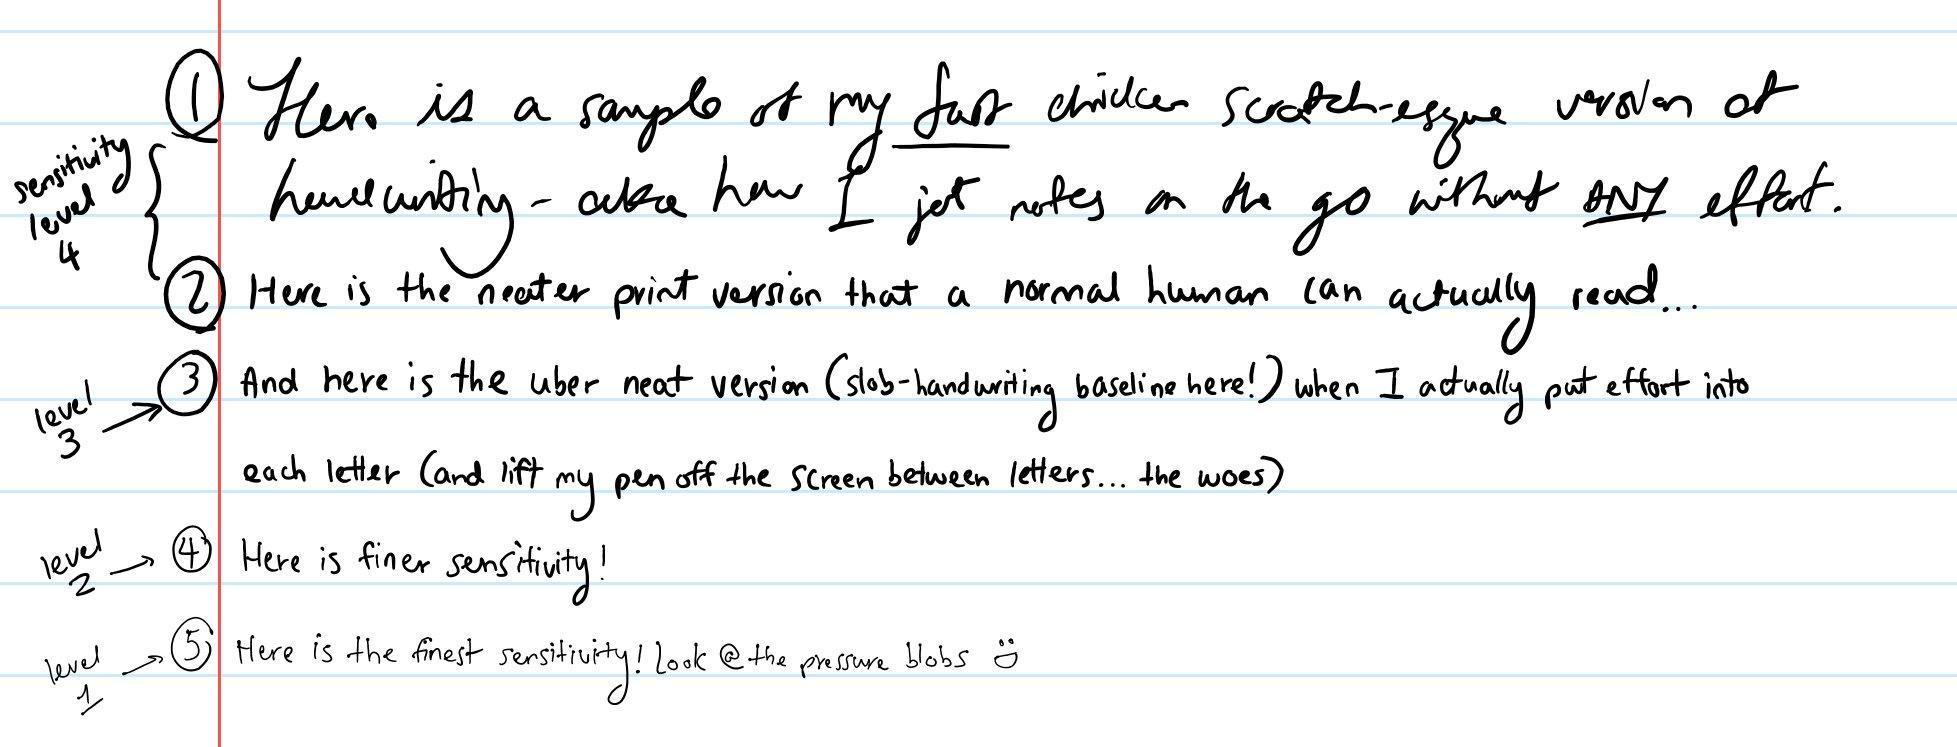 ① Here is a sample of my fast chicken scratch-esque version of
sensitivity
level
4
handwriting - aka how I jot notes on the go without ANY effort.
② Here is the neater print version that a normal human can actually read...
③ And here is the uber neat version (slob-handwriting baseline here!) when I actually put effort into
level
3
each letter (and lift my pen off the screen between letters... the woes)
level
2
④ Here is finer sensitivity!
level
1
⑤ Here is the finest sensitivity! Look @ the pressure blobs